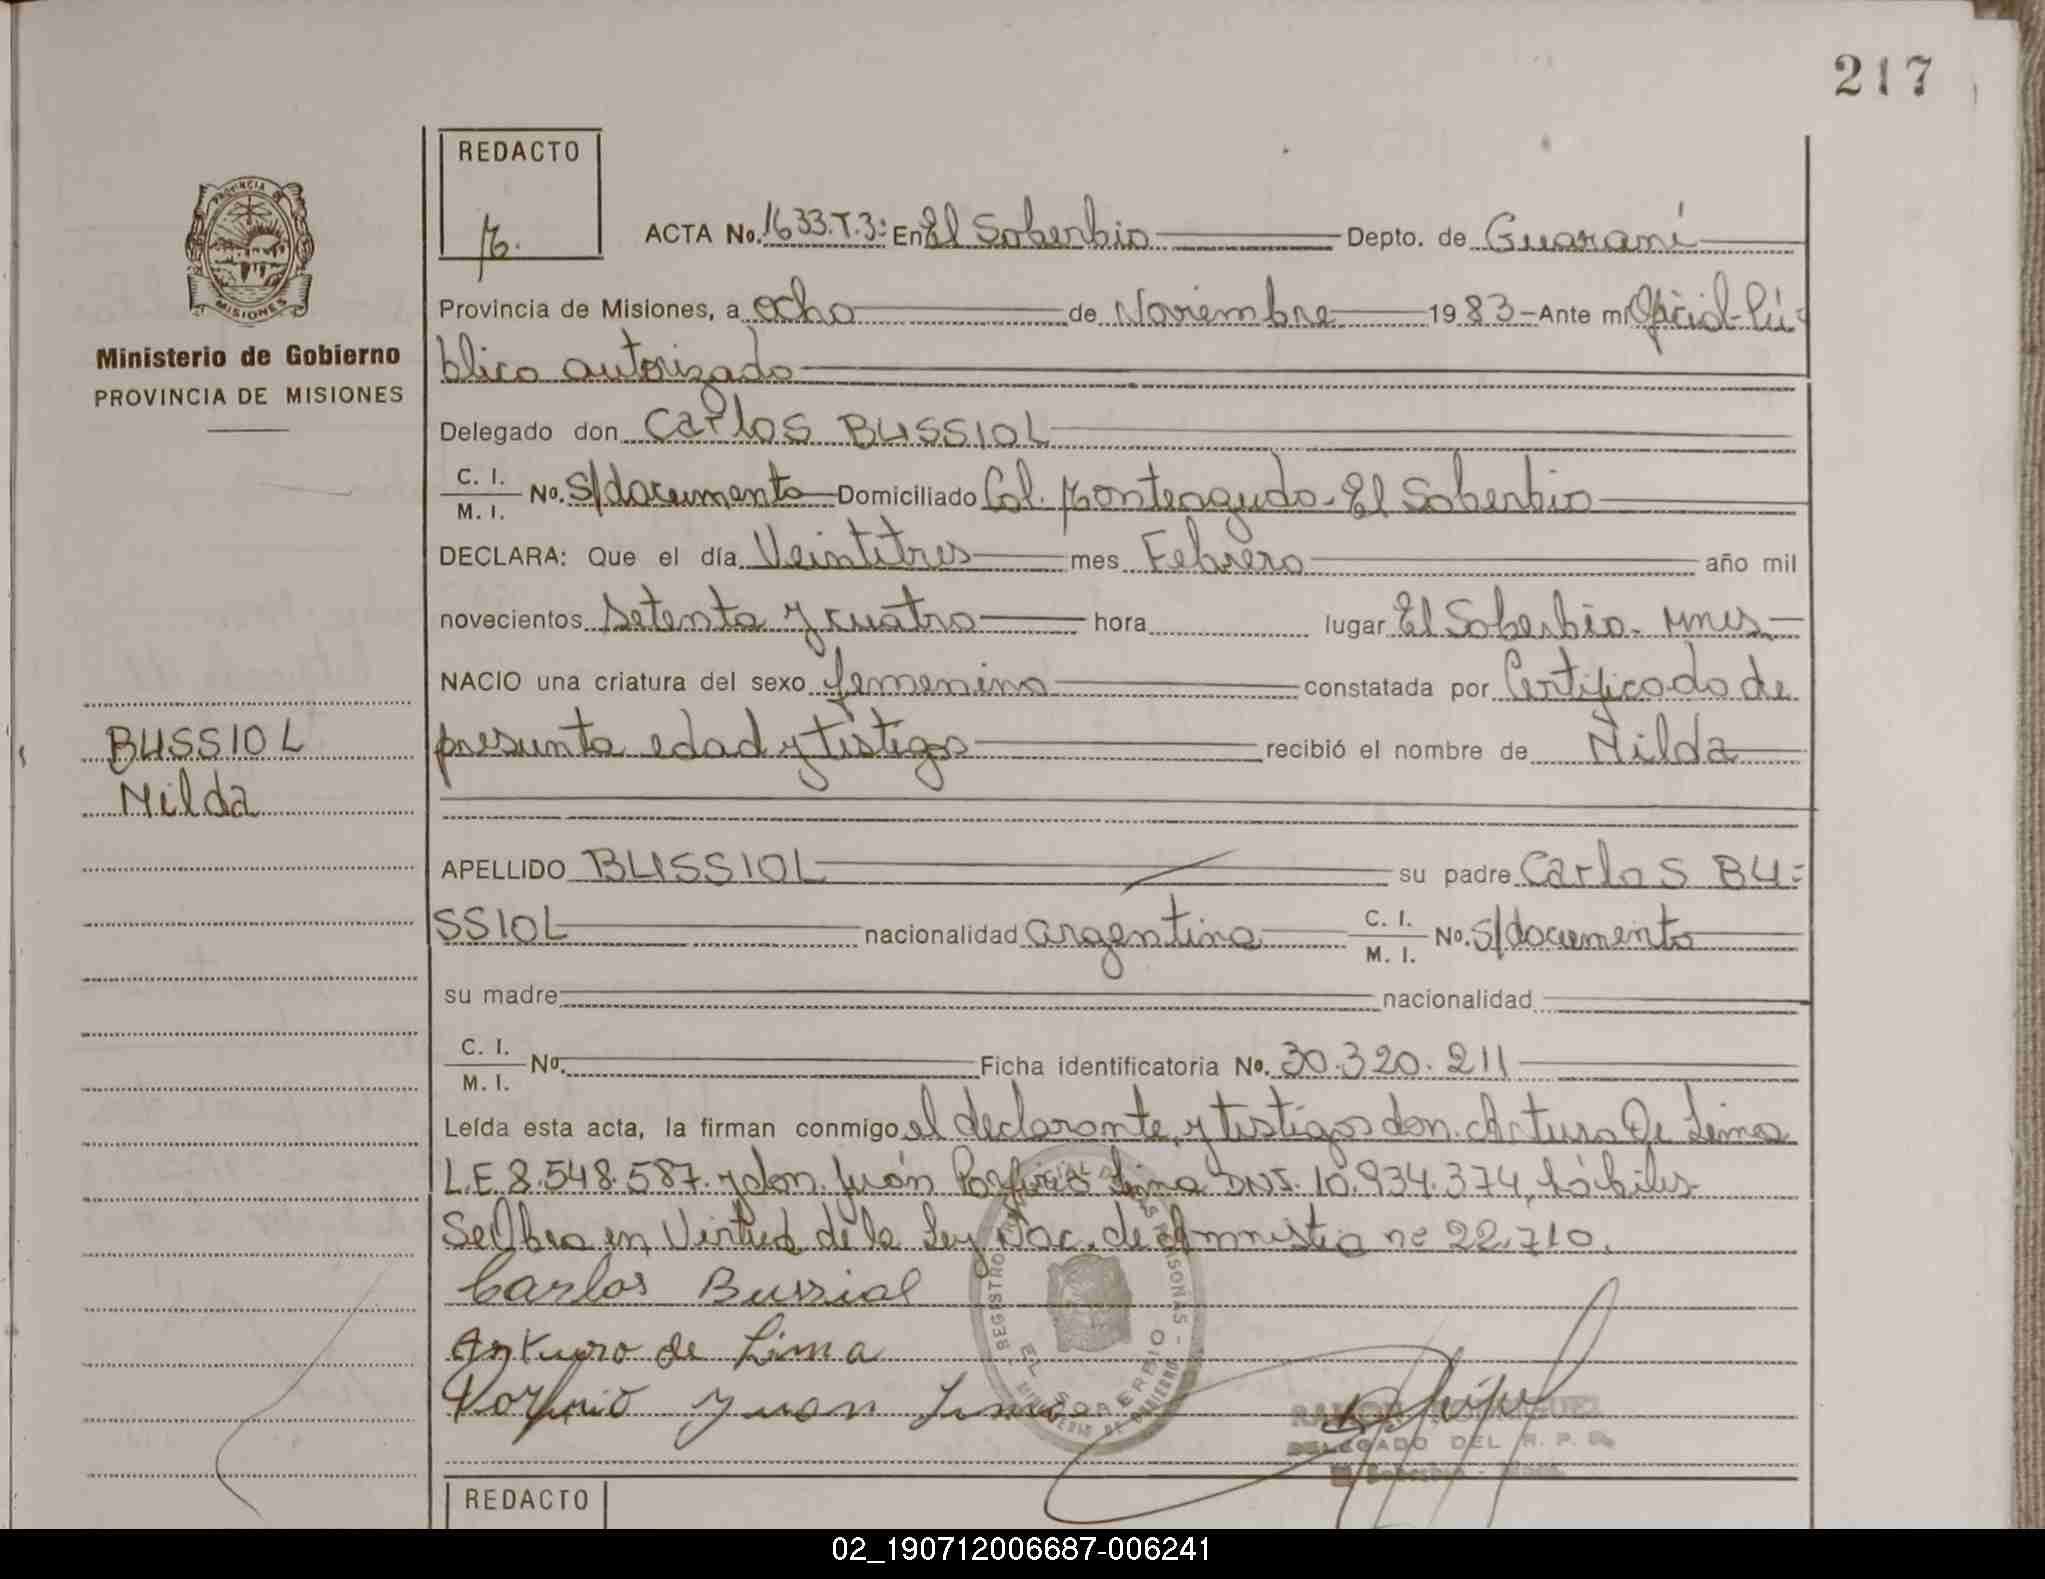 217
REDACTO
PROVINCIA
MISIONES
Ministerio de Gobierno
PROVINCIA DE MISIONES
ACTA No. 1633.T.3: En El Soberbio Depto. de Guaraní
Provincia de Misiones, a ocho de Noviembre 1983 - Ante mi Oficial Pú-
blico autorizado
Delegado don Carlos BUSSIOL
C. I.
M. I. No. S/documento Domiciliado Col. Monteagudo - El Soberbio
DECLARA: Que el día Veintitres mes Febrero año mil
novecientos setenta y cuatro hora lugar El Soberbio - Mnes.
NACIO una criatura del sexo femenino constatada por Certificado de
presunta edad y testigos recibió el nombre de Nilda
BUSSIOL
Nilda
APELLIDO BUSSIOL su padre Carlos BU=
SSIOL nacionalidad argentina C. I.
M. I. No. S/documento
su madre nacionalidad
C. I.
M. I. No. Ficha identificatoria No. 30.320.211
Leída esta acta, la firman conmigo el declarante, y testigos don Arturo De Lima
L.E 8.548.587. y don Juán Porfirio Lima DNI. 10.934.374, hábiles
Se Obra en Virtud de la Ley Nac. de Amnistia nº 22.710.
Carlos Bussiol
Arturo de Lima
Porfirio Juan Lima
EL SOBERBIO
DELEGADO DEL R. P. P.
REDACTO
02_190712006687-006241